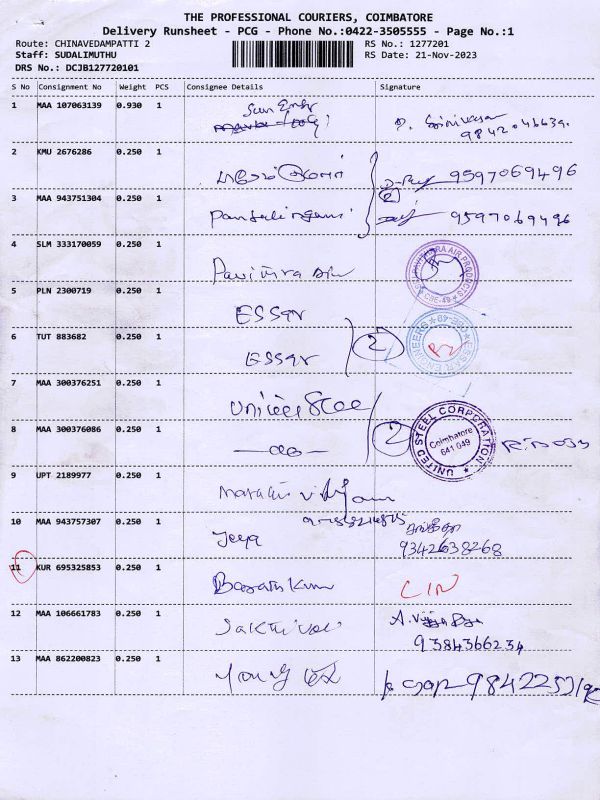 THE PROFESSIONAL COURIERS, COIMBATORE
Delivery Runsheet - PCG - Phone No.:0422-3505555 - Page No.:1
Route: CHINAVEDAMPATTI 2 RS No.: 1277201
Staff: SUDALIMUTHU RS Date: 21-Nov-2023
DRS No.: DCJB127720101
S No Consignment No Weight PCS Consignee Details Signature
1 MAA 107063139 0.930 1
9842046639
2 KMU 2676286 0.250 1 9597069496
3 MAA 943751304 0.250 1 2 9597069496
4 SLM 333170059 0.250 1 Pavithra Air PAVITHRA AIR PRODUCTS CBE-49
5 PLN 2300719 0.250 1 ESSar
6 TUT 883682 0.250 1 ESSar 2 ESSAR ENGINEERS CBE-49
7 MAA 300376251 0.250 1 United Steel
8 MAA 300376086 0.250 1 —do— 2 UNITED STEEL CORPORATION Coimbatore 641 049
9 UPT 2189977 0.250 1
10 MAA 943757307 0.250 1 Jeeya
9342638268
11 KUR 695325853 0.250 1 LIN
12 MAA 106661783 0.250 1 Sakthivel
9384366234
13 MAA 862200823 0.250 1